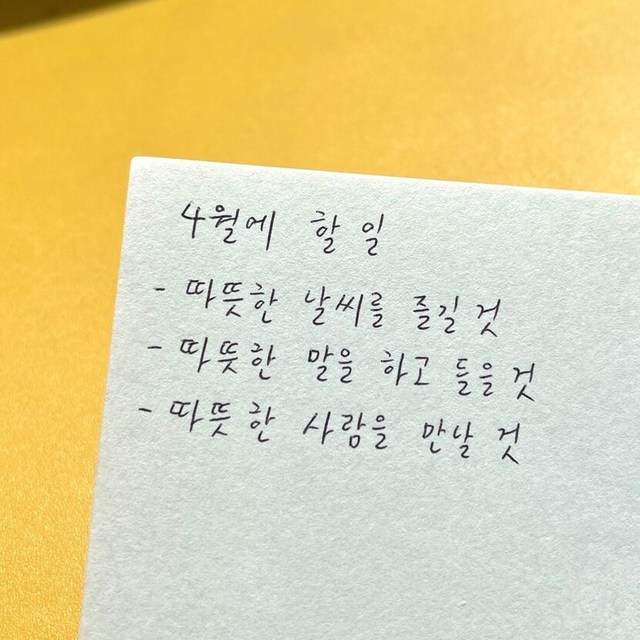 4월에 할 일
- 따뜻한 날씨를 즐길 것
- 따뜻한 말을 하고 들을 것
- 따뜻한 사람을 만날 것